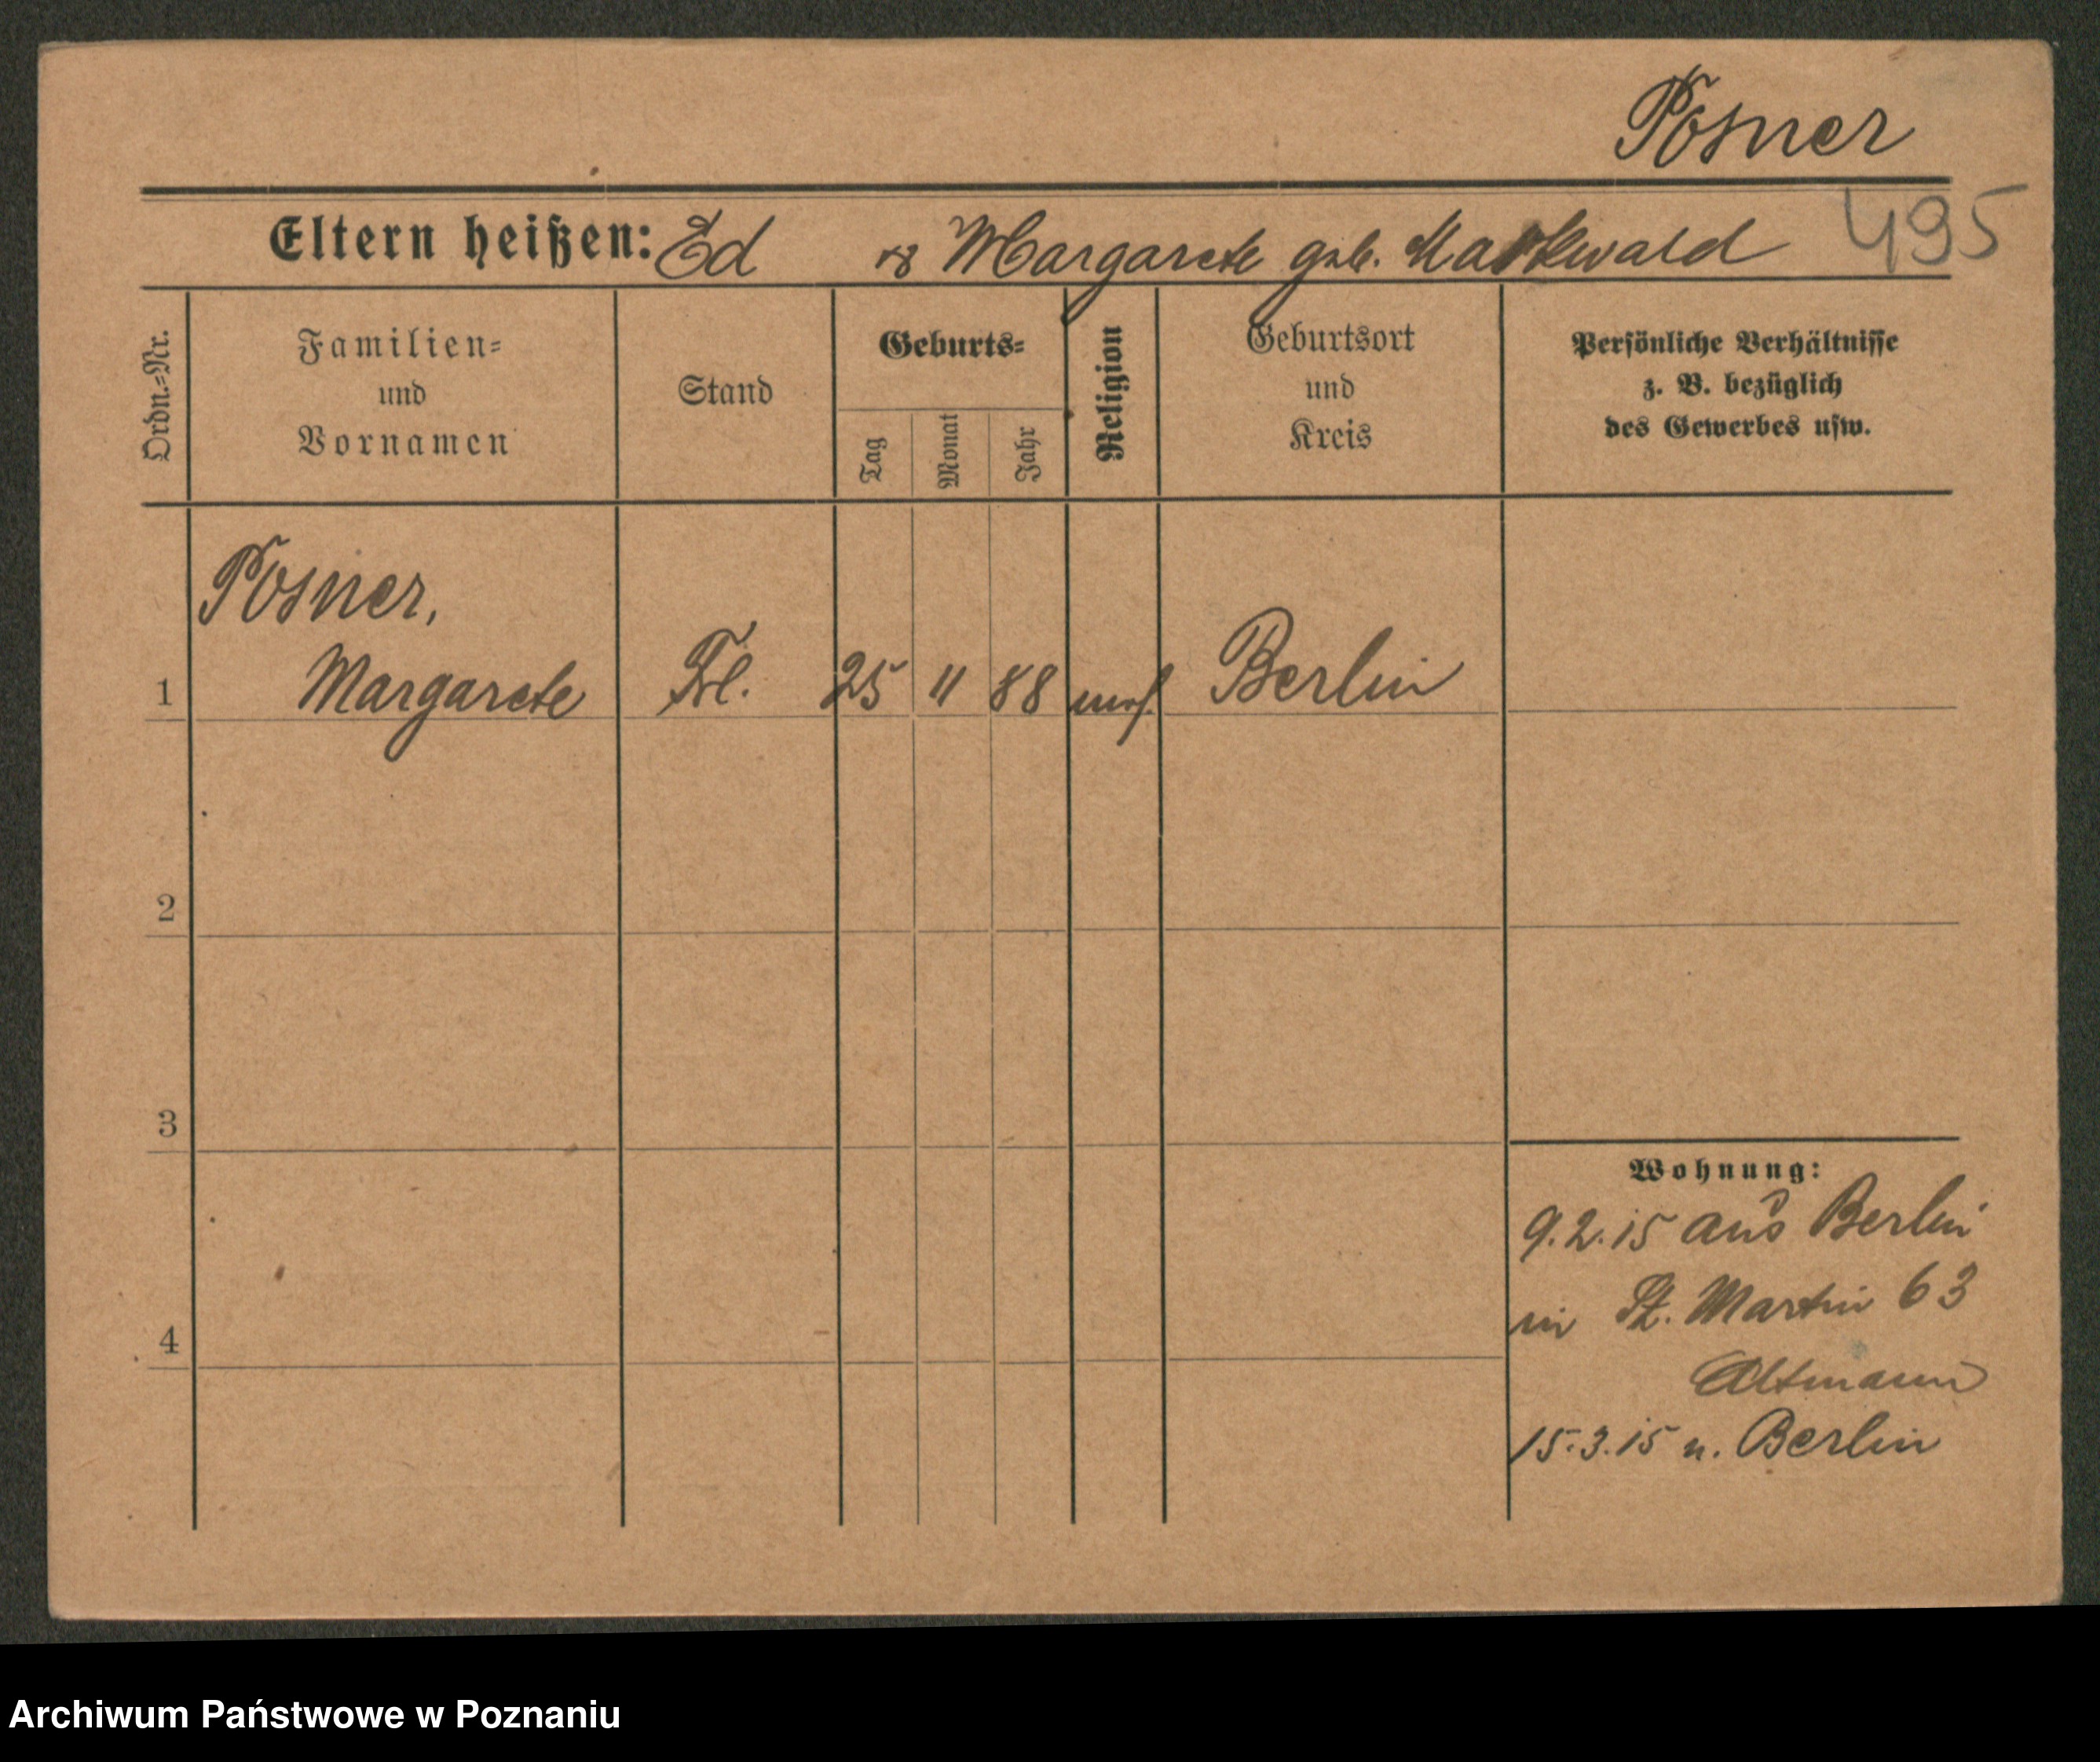 Posner
495
Eltern heißen: Ed & Margarete geb. Markwald
Ordn.=Nr.
Familien=
und
Vornamen
Stand
Geburts=
Tag
Monat
Jahr
Religion
Geburtsort
und
Kreis
Persönliche Verhältnisse
z. B. bezüglich
des Gewerbes usw.
Posner,
1 Margarete Frl. 25 11 88 mos. Berlin
2
3
4
Wohnung:
9.2.15 aus Berlin
in St. Martin 63
Altmann
15.3.15 n. Berlin
Archiwum Państwowe w Poznaniu